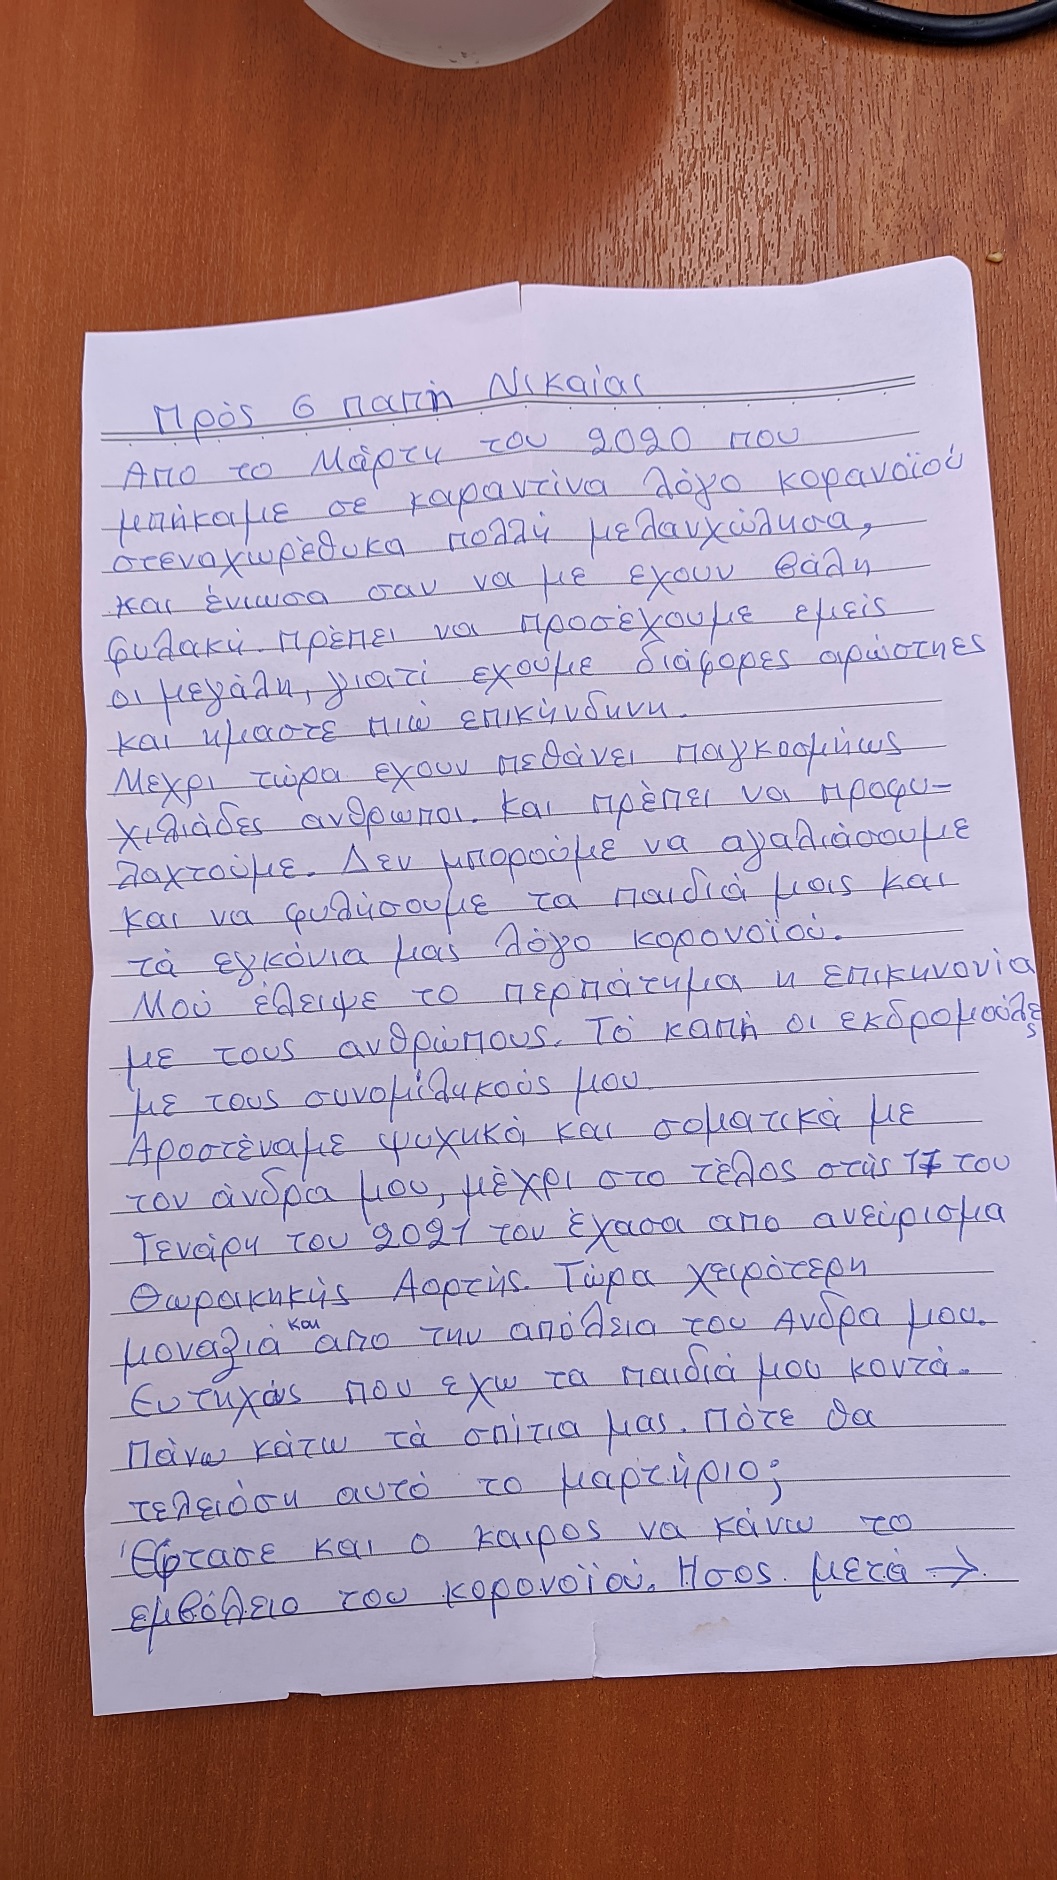 Πρός 6 παπή Νικαίας
Απο το Μάρτη του 2020 που
μπήκαμε σε καραντίνα λόγο κορανοϊού
στεναχωρέθυκα πολλή μελανχώλησα,
και ένιωσα σαν να με εχουν βάλη
φυλακή. πρέπει να προσέχουμε εμείς
οι μεγάλη, γιατί εχούμε διάφορες αρώστηες
και ημαστε πιώ επικήνδυνη.
Μεχρι τώρα εχουν πεθάνει παγκοσμήως
χιλιάδες ανθρωποι. και πρέπει να προφυ-
λαχτούμε. Δεν μπορούμε να αγαλιάσουμε
και να φυλήσουμε τα παιδιά μας και
τά εγκόνια μας λόγο κορονοϊού.
Μού έλειψε το περπάτημα η επικηνονία
με τους ανθρώπους. Τό καπή οι εκδρομούλες
με τους συνομίληκούς μου
Αροστέναμε ψυχικά και σοματικά με
τον άνδρα μου, μέχρι στο τέλος στής 17 του
Γενάρη του 2021 τον έχασα απο ανεύρισμα
Θωρακηκής Αορτής. Τώρα χειρότερη
μοναξιά και απο την απόλεια του Ανδρα μου.
Ευτηχάς που εχω τα παιδιά μου κοντά.
Πάνω κάτω τά σπίτια μας. Πότε θα
τελειόση αυτό το μαρτήριο;
Έφτασε και ο καιρος να κάνω το
εμβόλειο του κορονοϊού. Ησος μετά →